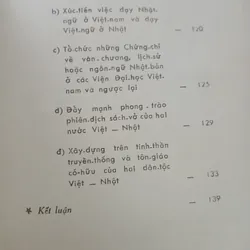 b) Xúc-tiến việc dạy Nhật-
ngữ ở Việt-nam và dạy
Việt-ngữ ở Nhật — 120
c) Tổ-chức những Chứng-chỉ
về văn-chương, lịch-sử
hoặc ngôn-ngữ Nhật-bản
ở các Viện Đại-học Việt-
nam và ngược lại — 125
d) Đẩy mạnh phong-trào
phiên-dịch sách-vở của hai
nước Việt — Nhật — 129
đ) Xây-dựng trên tinh-thần
truyền-thống và tôn-giáo
cố-hữu của hai dân-tộc
Việt — Nhật — 133
* Kết luận — 139